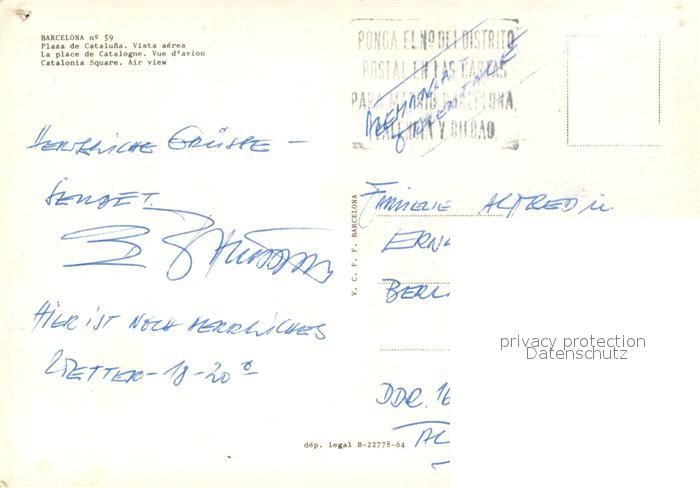 BARCELONA nº 59
Plaza de Cataluña. Vista aérea
La place de Catalogne. Vue d'avion
Catalonia Square. Air view
PONGA EL Nº DEL DISTRITO
POSTAL EN LAS CARTAS
PARA MADRID BARCELONA,
VALENCIA Y BILBAO
ALEMANIA
ORIENTALE
HERZLICHE GRÜSSE –
SENDET
HIER IST NOCH HERRLICHES
WETTER – 18 – 20°
V. C. F. F. BARCELONA
FAMILIE ALFRED u.
ERN
BERLI
DDR. 16
AL
privacy protection
Datenschutz
dép. legal B-22778-64